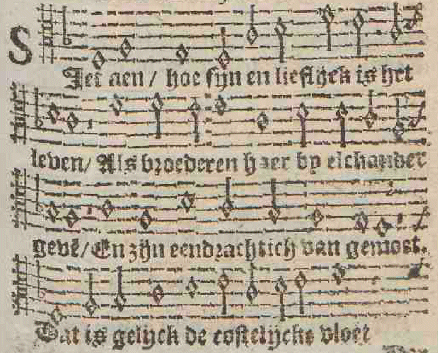 SIet aen / hoe fijn en lieflijck is het
leven / Als broederen haer by elckander
gevē / En zijn eendrachtich van gemoet.
Dat is gelijck de costelijcke vloet